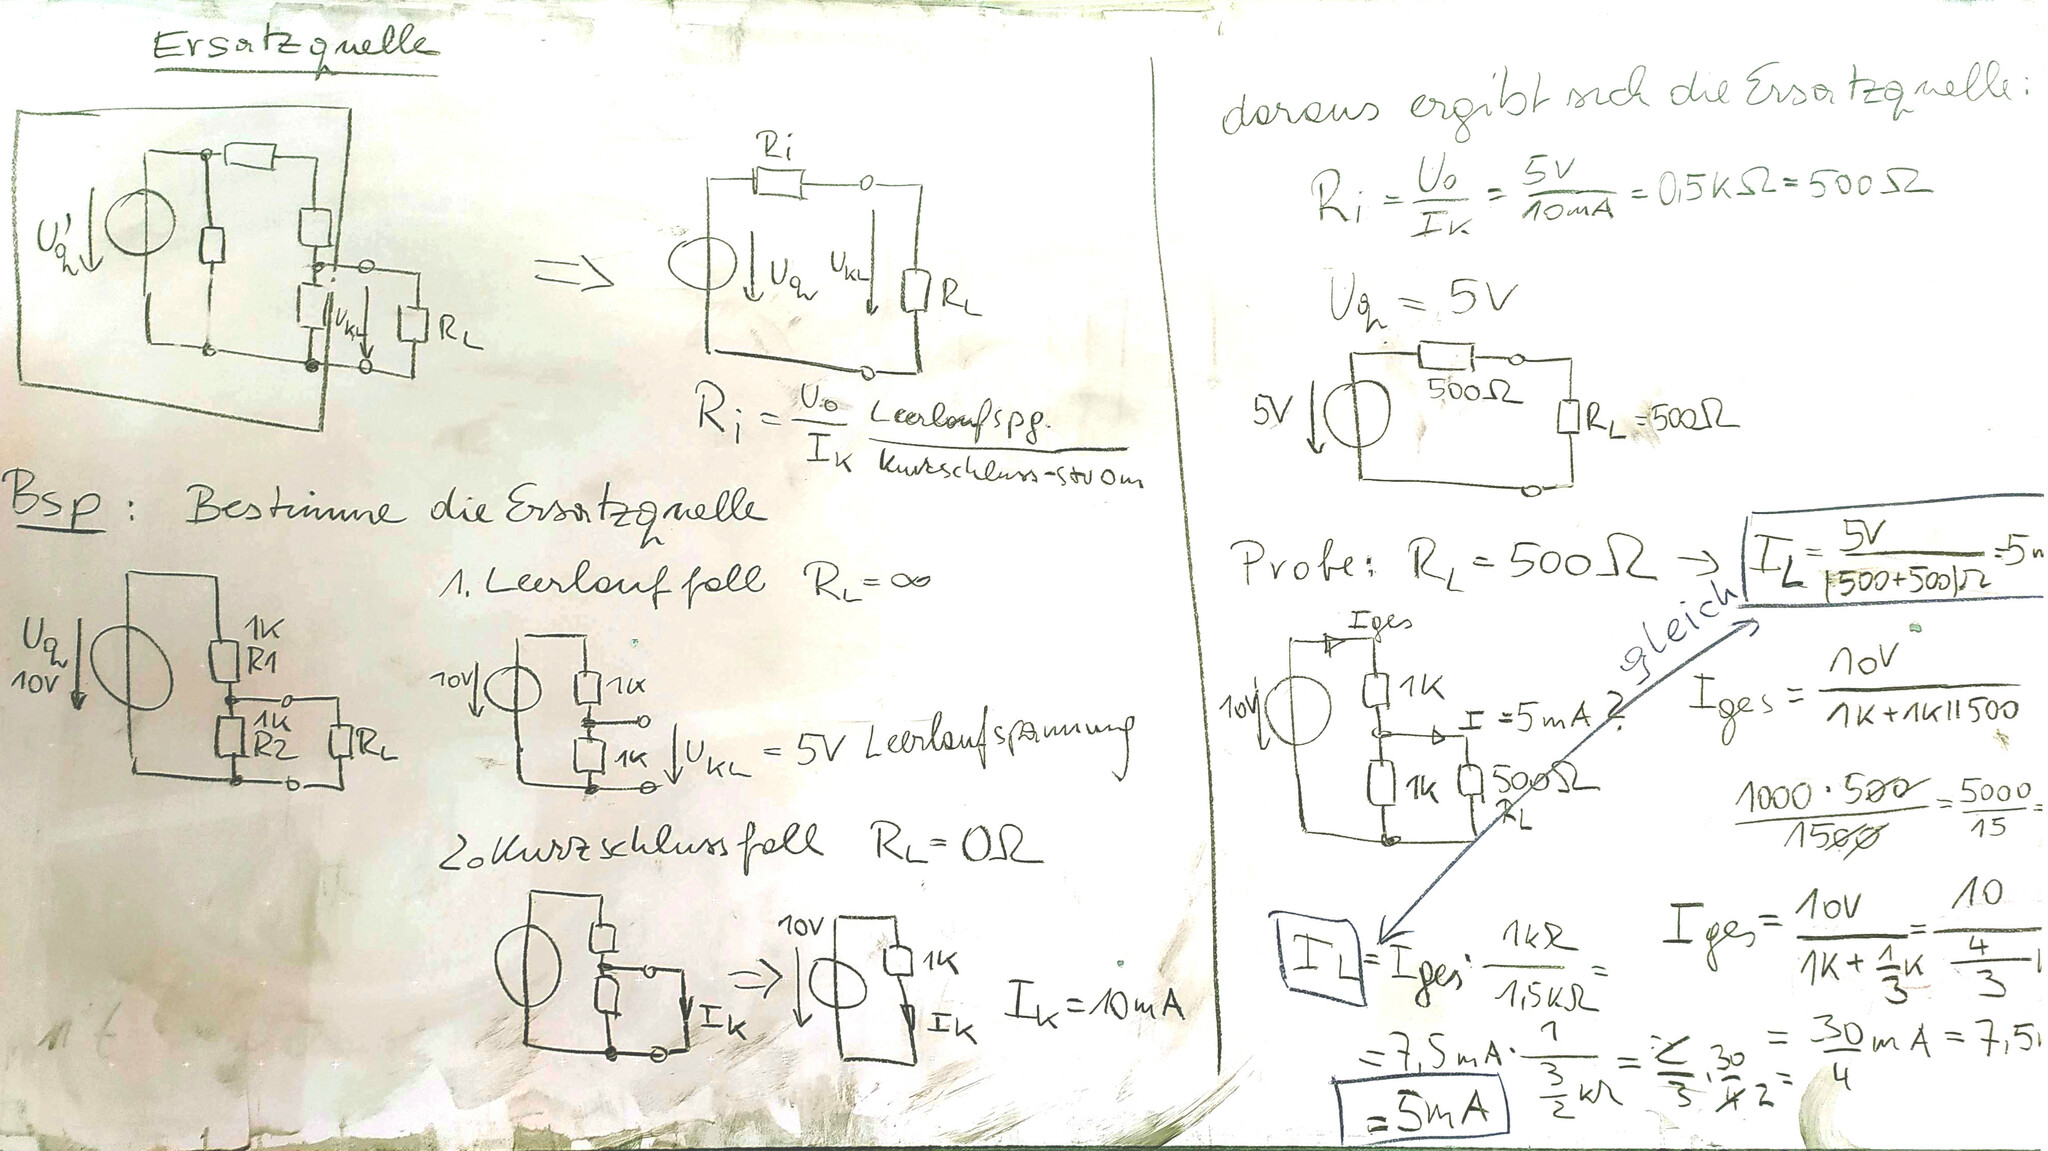 Ersatzquelle
Uq'
UKL
RL
⇒
Ri
Uq
UKL
RL
Ri = U0 / IK Leerlaufspg. / Kurzschluss-strom
Bsp: Bestimme die Ersatzquelle
Uq
10V
1K
R1
1K
R2
RL
1. Leerlauffall RL = ∞
10V
1K
1K
UKL = 5V Leerlaufspannung
2. Kurzschlussfall RL = 0Ω
IK
⇒
10V
1K
IK
IK = 10mA
daraus ergibt sich die Ersatzquelle:
Ri = U0 / IK = 5V / 10mA = 0,5KΩ = 500Ω
Uq = 5V
5V
500Ω
RL = 500Ω
Probe: RL = 500Ω → IL = 5V / (500+500)Ω = 5m
gleich
Iges
10V
1K
I = 5mA ?
1K
500Ω
RL
Iges = 10V / 1K + 1K || 500
1000 · 500 / 1500 = 5000 / 15 =
Iges = 10V / 1K + 1/3 K = 10 / 4/3
= 30/4 mA = 7,5
IL = Iges · 1KΩ / 1,5KΩ =
= 7,5mA · 1 / 3/2 KΩ = 2/3 · 30/4 2 =
= 5mA